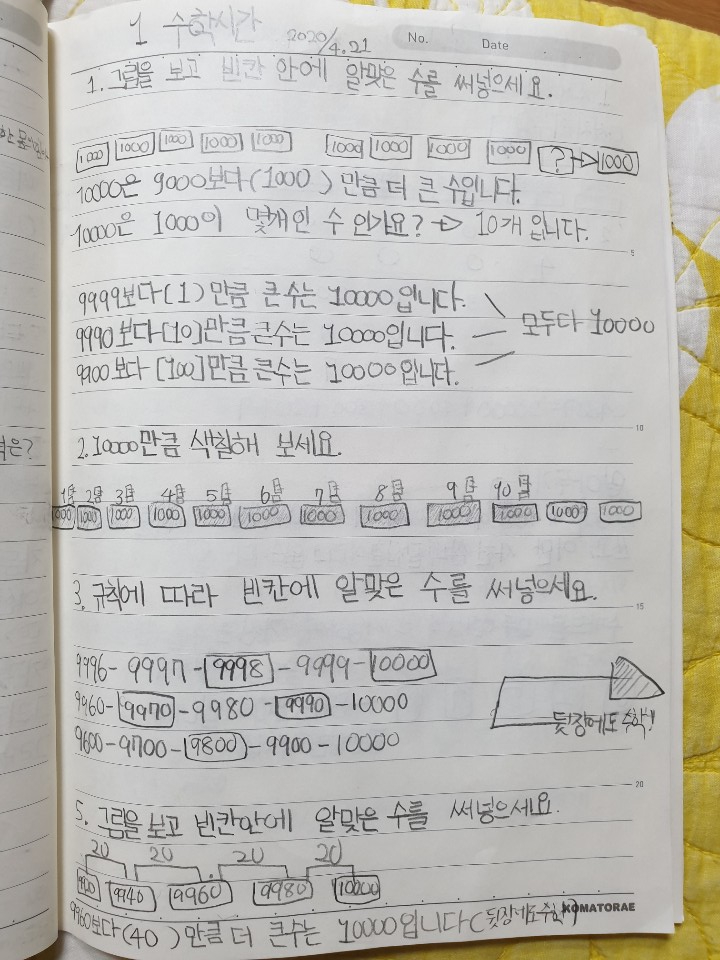 1 수학시간 2020/4.21 No. Date
1. 그림을 보고 빈칸 안에 알맞은 수를 써넣으세요.
1000 1000 1000 1000 1000 1000 1000 1000 1000 ? → 1000
10000은 9000보다(1000) 만큼 더 큰 수입니다.
10000은 1000이 몇개인 수 인가요? → 10개 입니다.
5
9999보다(1) 만큼 큰수는 10000입니다.
9990보다[10]만큼 큰수는 10000입니다. 모두다 10000
9900보다 [100]만큼큰수는 10000입니다.
10
2. 10000만큼 색칠해 보세요.
1장 2장 3장 4장 5장 6장 7장 8장 9장 10장
1000 1000 1000 1000 1000 1000 1000 1000 1000 1000 1000 1000
3. 규칙에 따라 빈칸에 알맞은 수를 써넣으세요.
15
9996-9997-9998-9999-10000
9960-9970-9980-9990-10000
뒷장에도 수학!
9600-9700-9800-9900-10000
20
5. 그림을 보고 빈칸안에 알맞은 수를 써넣으세요.
20 20 20 20
9920 9940 9960 9980 10000
KOMATORAE
9960보다(40) 만큼 더 큰수는 10000입니다(뒷장에도수학)